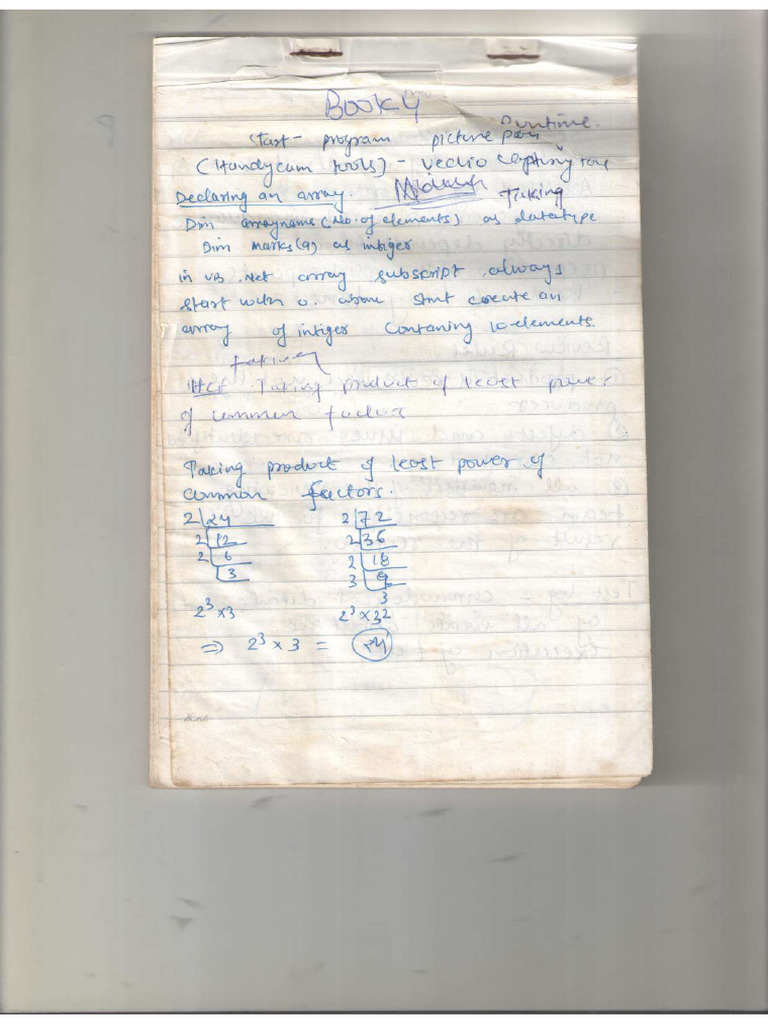 BOOK 4
Runtime.
Start - program picture
(Handycam tools) - vedio capturing
Declaring an array. Taking
Dim arrayname (No. of elements) as datatype
Dim marks(9) as intiger
in VB .Net array subscript always
start with 0. above stmt create an
array of intiger Contaning 10-elements.
taking
HCF Taking product of least power
of common factors
Taking product of least power of
common factors.
2 24 2 72
2 12 2 36
2 6 2 18
3 3 9
3
2³ × 3 2³ × 3²
⇒ 2³ × 3 = 24